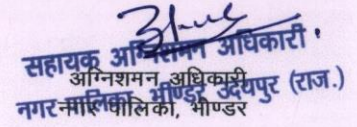 सहायक अग्निशमन अधिकारी
अग्निशमन अधिकारी
नगर पालिका, भीण्डर उदयपुर (राज.)
नगर पालिका, भीण्डर